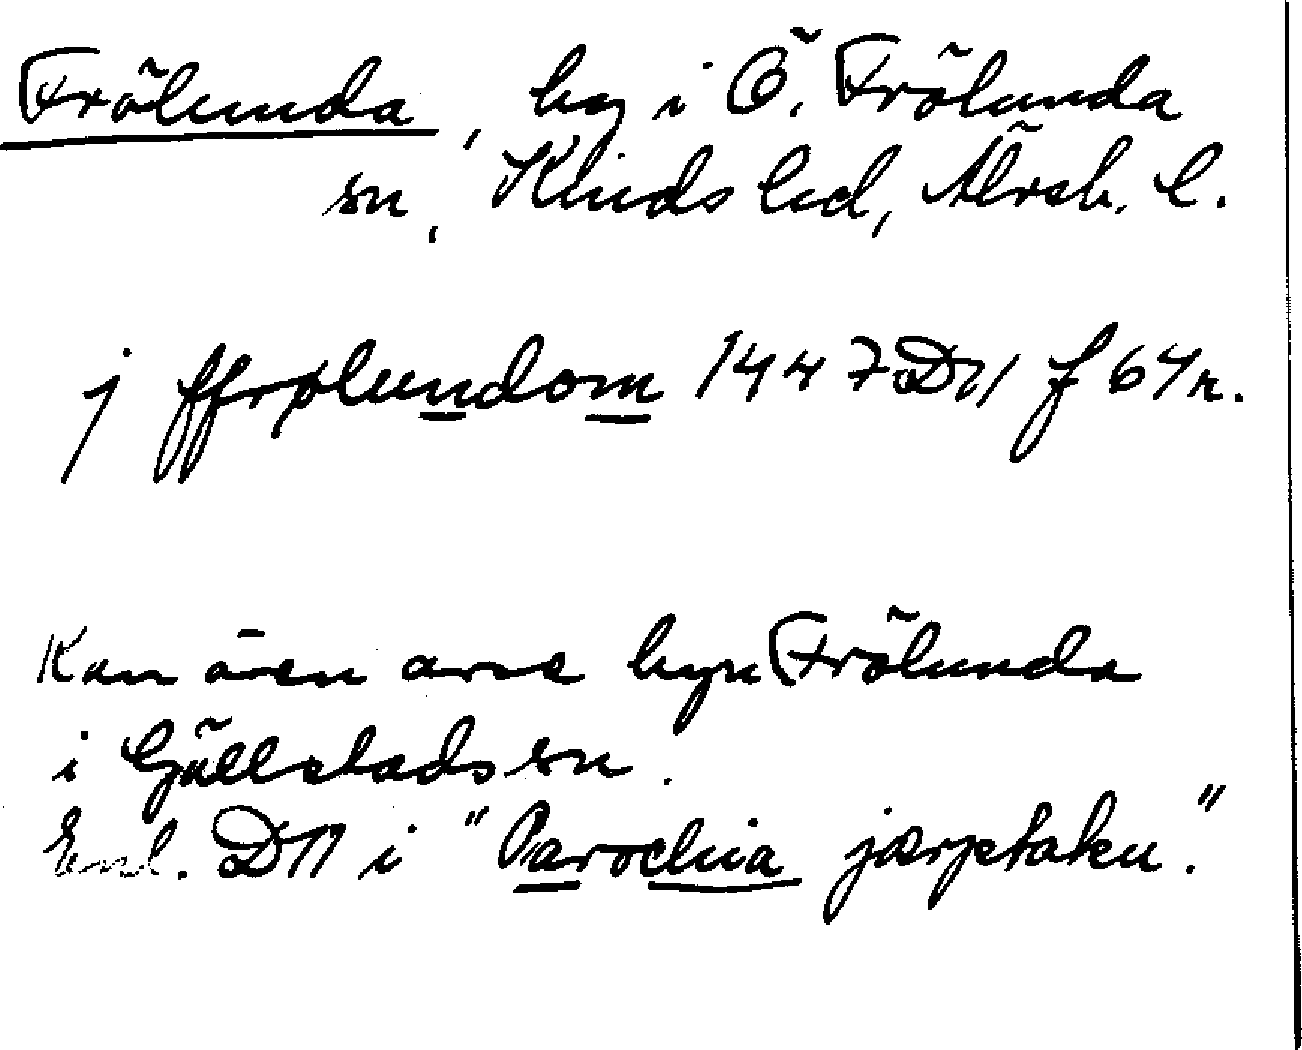 Frölunda, by i Ö. Frölunda
sn, Kinds hd, Älvsb. l.
j ffrølundom 1447 DN f 64 r.
Kan även avse byn Frölunda
i Gällstads sn.
Enl. DN i "Parochia jærptaku."